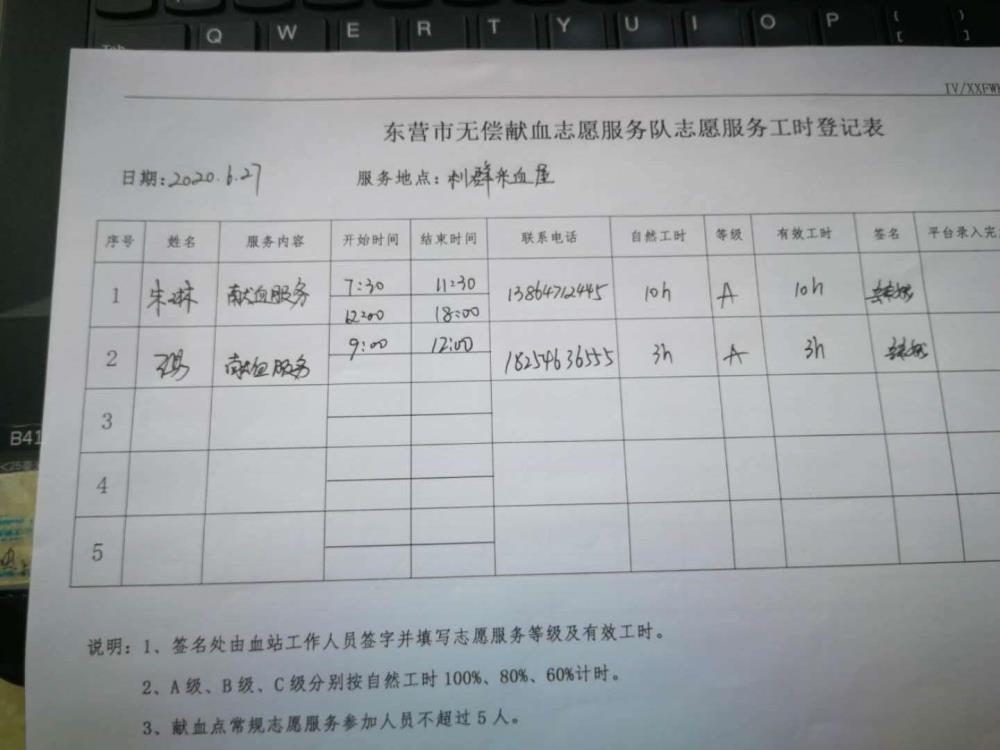 Q W E R T Y U I O P { [ } ]
IV/XXFW
东营市无偿献血志愿服务队志愿服务工时登记表
日期:2020.6.27 服务地点:利群采血屋
序号 姓名 服务内容 开始时间 结束时间 联系电话 自然工时 等级 有效工时 签名 平台录入完
1 朱琳 献血服务 7:30 11:30 13864712445 10h A 10h
12:00 18:00
2 献血服务 9:00 12:00 18254636555 3h A 3h
3
4
5
B41
说明：1、签名处由血站工作人员签字并填写志愿服务等级及有效工时。
2、A级、B级、C级分别按自然工时100%、80%、60%计时。
3、献血点常规志愿服务参加人员不超过5人。